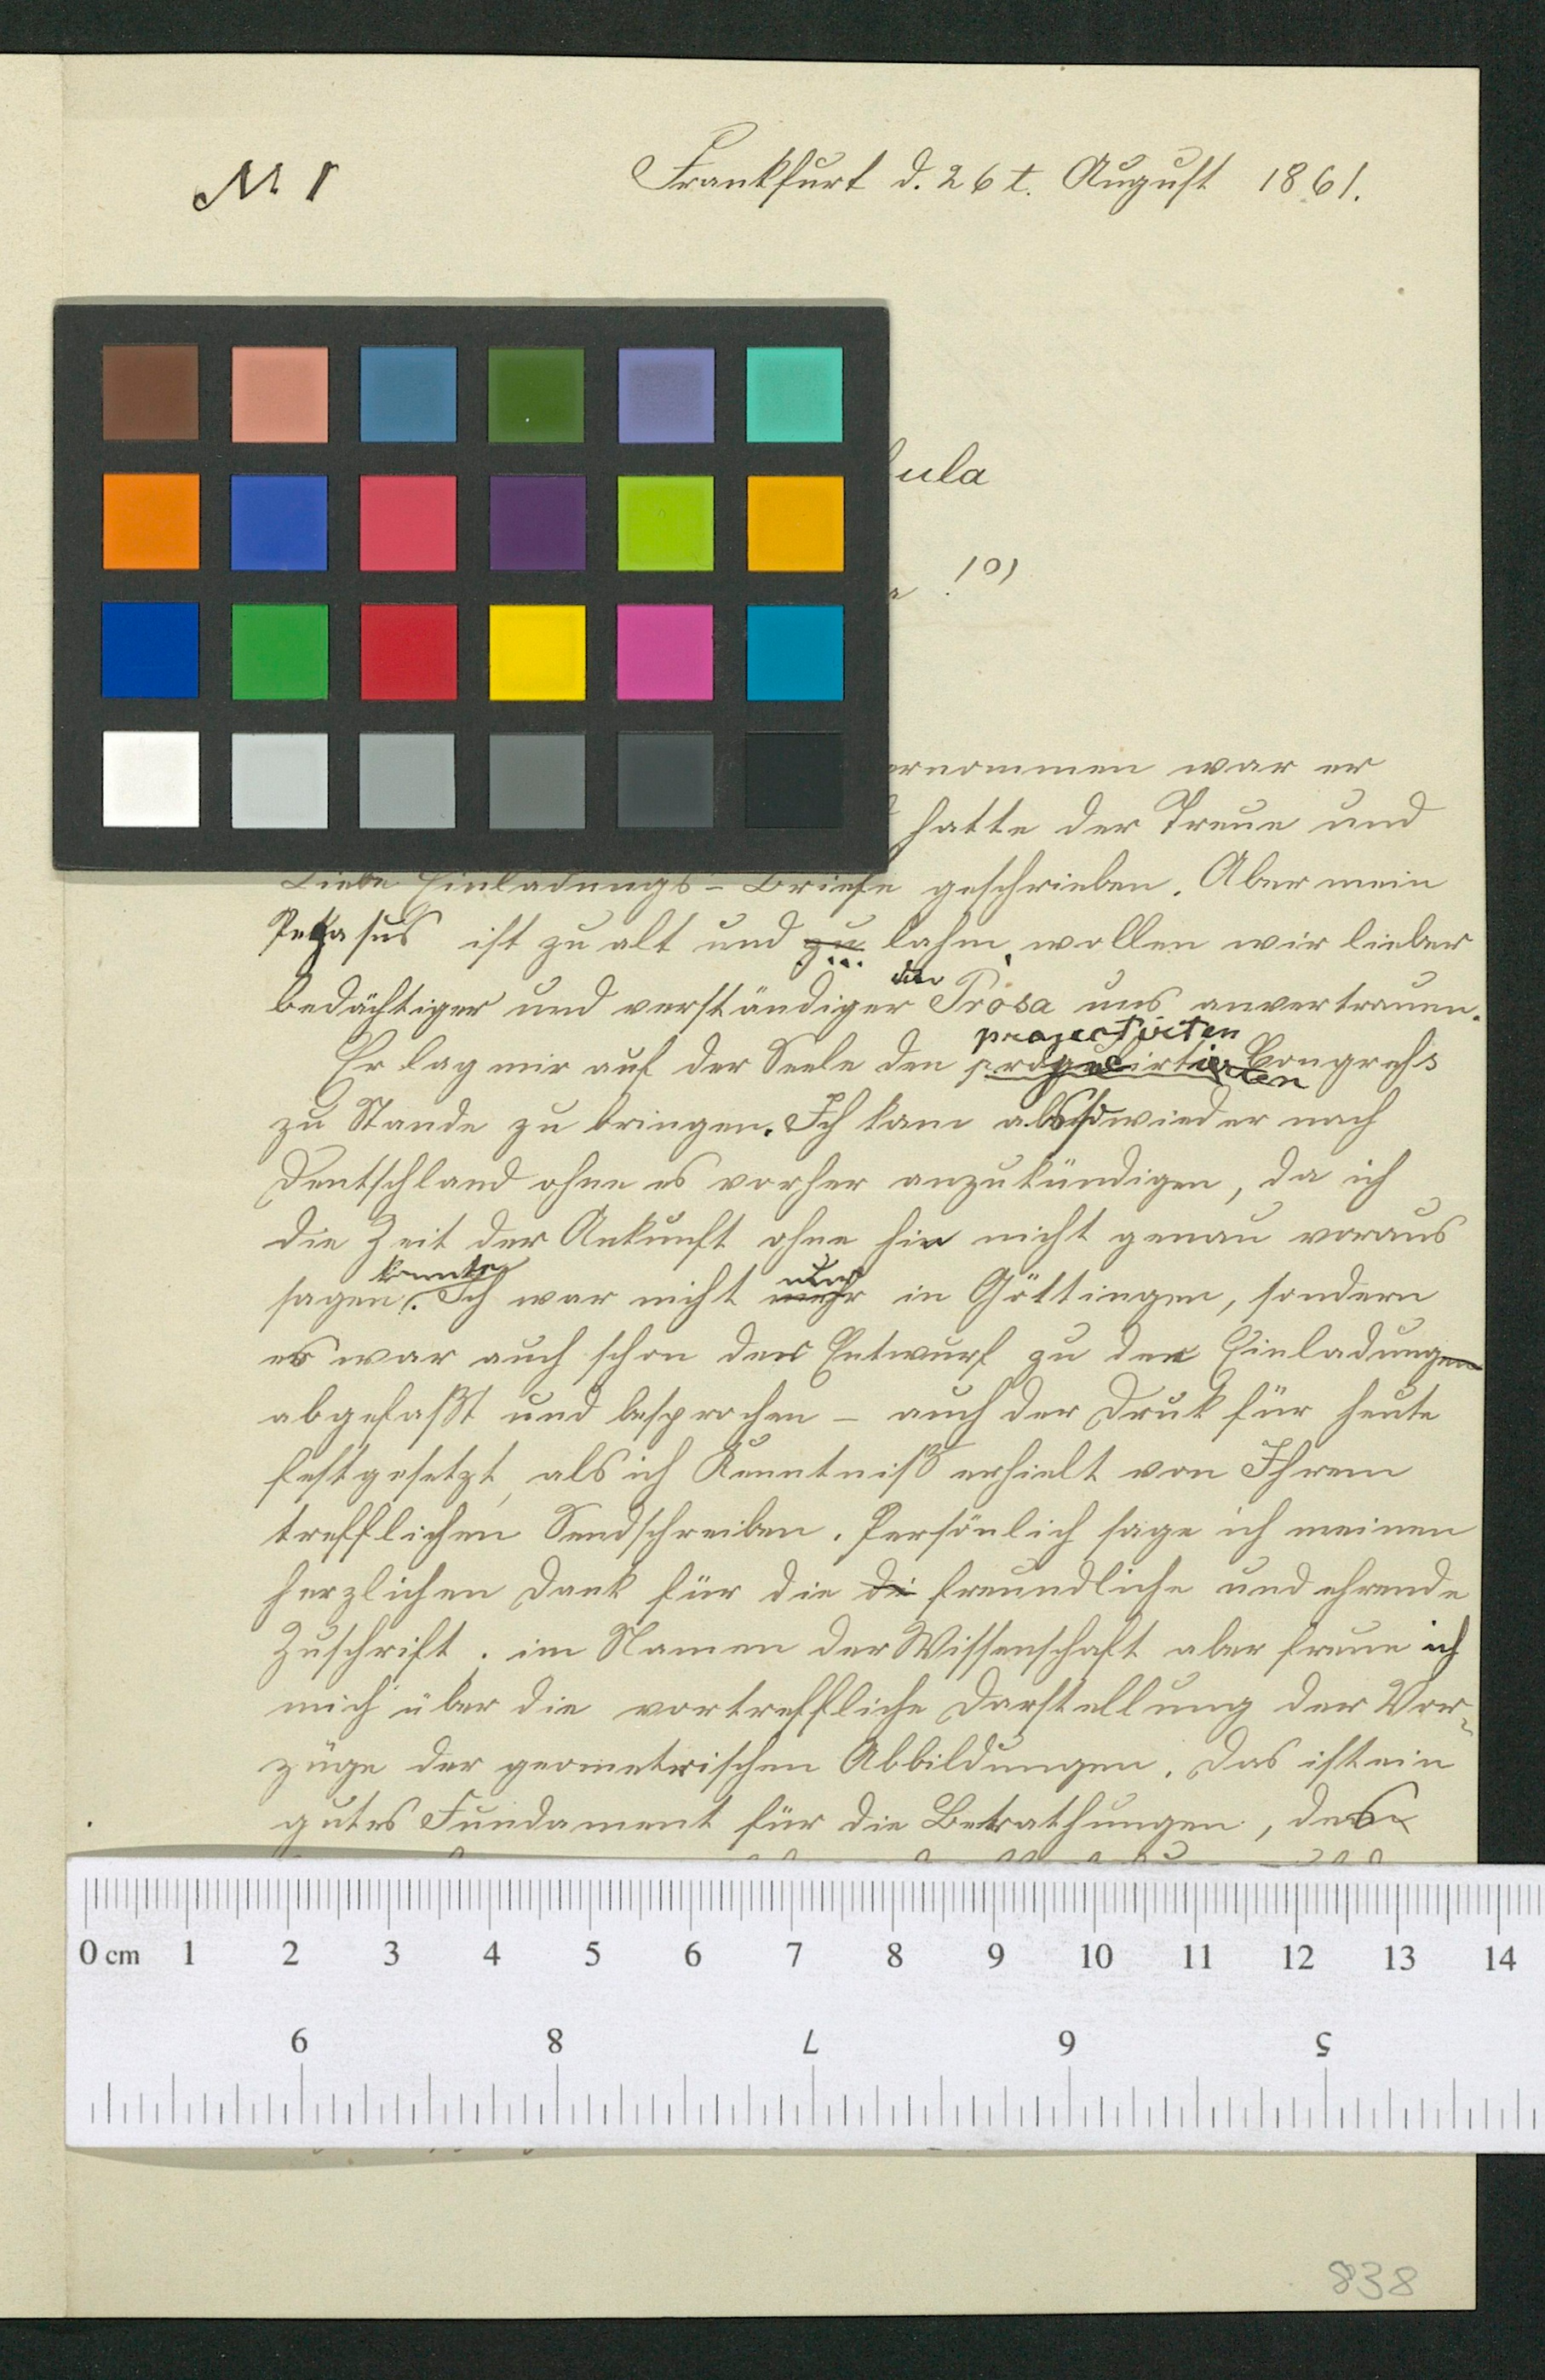 № 1
Frankfurt d. 26t. August 1861.
ula
101
ernommen war er
hatte der Treue und
Liebe Einladungs-Briefe geschrieben. Aber mein
Pegasus ist zu alt und zu lahm, wollen wir lieber
der
bedächtiger und verständiger Prosa uns anvertrauen.
projectirten
Er lag mir auf der Seele den Congreß
zu Stande zu bringen. Ich kam also wieder nach
Deutschland ohne es vorher anzukündigen, da ich
die Zeit der Ankunft ohne hin nicht genau voraus
konnte
nur
sagen. Ich war nicht mehr in Göttingen, sondern
es war auch schon der Entwurf zu den Einladungen
abgefaßt und besprochen – auch der Druk für heute
festgesetzt, als ich Kenntniß erhielt von Ihrem
trefflichen Sendschreiben. Persönlich sage ich meinen
herzlichen Dank für die di freundliche und ehrende
Zuschrift. im Namen der Wissenschaft aber freue ich
mich über die vortreffliche Darstellung der Vor-
züge der geometrischen Abbildungen. Das ist ein
gutes Fundament für die Berathungen, des
0 cm 1 2 3 4 5 6 7 8 9 10 11 12 13 14
9 8 7 6 5
838